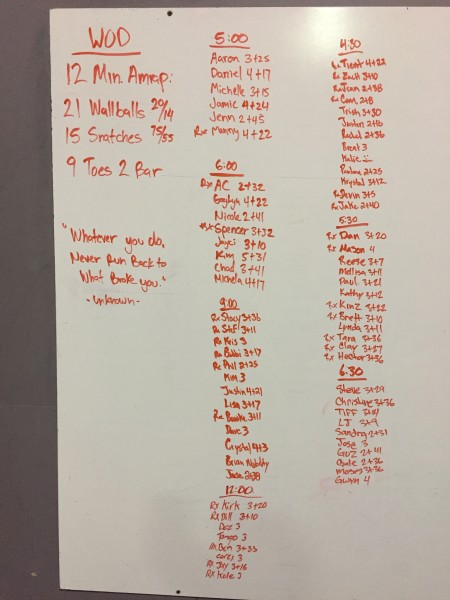 WOD
12 Min Amrap:
21 Wallballs 20/14
15 Snatches 75/55
9 Toes 2 Bar
"Whatever you do,
Never Run Back to
What Broke you."
- Unknown -
5:00
Aaron 3+25
Daniel 4+17
Michelle 3+15
Jamie 4+24
Jenn 2+45
Rx Manny 4+22
6:00
Rx AC 2+32
4+22
Nicole 2+41
Rx Spencer 3+32
Jayci 3+10
Kim 5+31
Chad 3+41
Michela 4+17
9:00
Rx Stacy 3+36
Rx Stef 3+11
Rx Kris 3
Rx Bobbi 3+17
Rx Phil 2+25
Kim 3
Justin 4+21
Lisa 3+17
Rx Brooke 3+11
Dave 3
Crystal 4+3
Brian
Jose 2+38
12:00
Rx Kirk 3+20
Rx Bill 3+10
Dez 3
Tango 3
Rx Ben 3+33
Corey 3
Rx Jay 3+16
Rx Kole 3
4:30
Rx Trent 4+22
Rx Zach 3+10
Rx Jean 2+38
Rx Cam 2+8
Trish 3+30
Justin 2+16
Rachel 2+36
Brent 3
Katie
2+25
Krystal 3+12
Rx Devin 3+5
Rx Jake 2+40
5:30
Rx Dan 3+20
Rx Mason 4
Reese 3+7
Melissa 3+11
Paul 3+21
Kathy 3+12
Rx Kinz 3+22
Rx Brett 3+10
Lynda 3+11
Rx Tara 3+36
Rx Clay 3+27
Rx Hector 3+36
6:30
Steve 3+29
Christine 3+36
Tiff
LJ 3+9
Sandra 2+31
Jose 3
Guz 2+41
2+36
Moses 3+36
Gwen 4